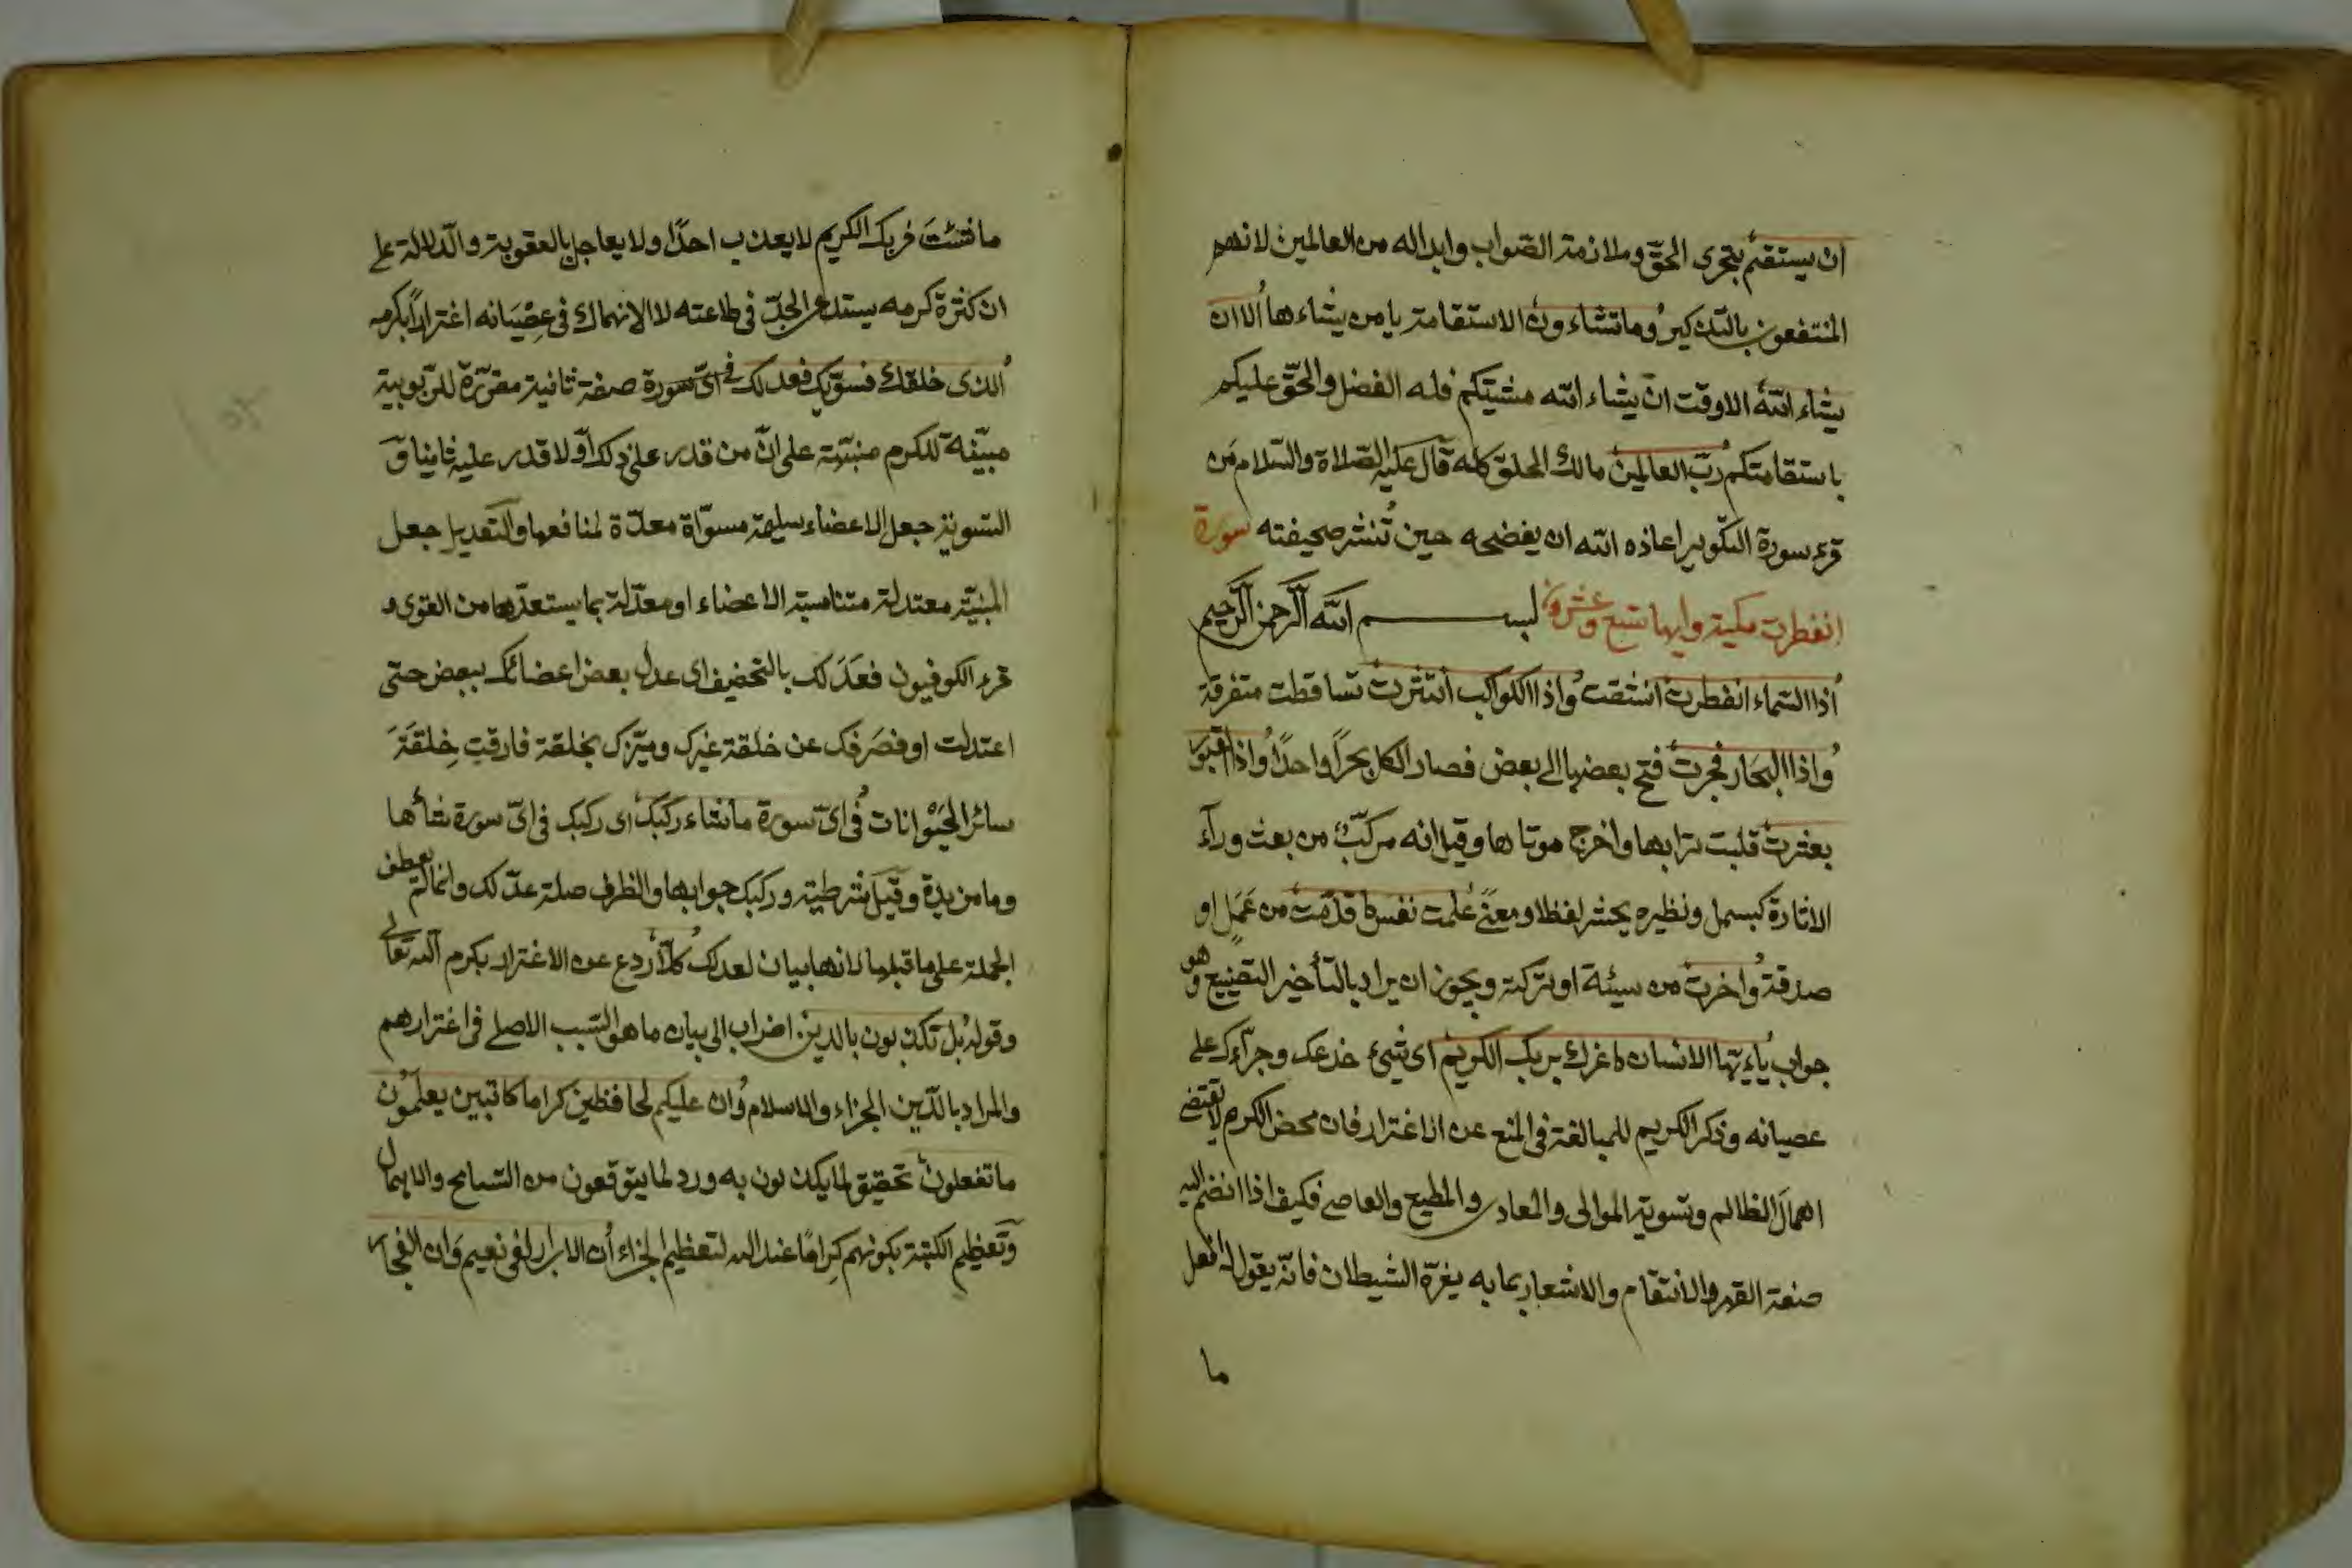 ان يستقيم بتحرى الحقّ وملازمة الصّواب وابداله من العالمين لانهم
المنتفعون بالتذكير وما تشاءون الاستقامة يا من يشاءها الا ان
يشاء الله الا وقت ان يشاء الله مشيتكم فله الفضل والحقّ عليكم
باستقامتكم ربّ العالمين مالك الخلق كله قال عليه الصّلاة والسّلام من
قرء سورة التكوير اعاذه الله ان يفضحه حين تُنشر صحيفته سورة
انفطرت مكية وايها تسع وعشرون بســـم الله الرّحمن الرّحيم
اذا السّماء انفطرت انشقت واذا الكواكب انتثرت تساقطت متفرقة
واذا البحار فجرت فتح بعضها الى بعض فصار الكل بحرًا واحدًا واذا القبور
بعثرت قلبت ترابها واخرج موتاها وقيل انه مركّب من بعث ورآء
الاثارة كبسمل ونظيره بحثر لفظا ومعنًى علمت نفس ما قدّمت من عَمَلٍ او
صدقة واخرت من سيئة او تركته ويجوز ان يراد بالتأخير التضييع وهو
جواب ياءيّها الانسان ما غرك بربك الكريم اى شىء خدعك وجرّاءك على
عصيانه وذكر الكريم للمبالغة فى المنع عن الاغترار فان محض الكرم لا تقتضى
اهمال الظالم وتسوية الموالى والمعادى والمطيع والعاصى فكيف اذا انضم اليه
صفة القهر والانتقام والاشعار بما به يغرّه الشيطان فانّه يقول له افعل
ما
ما شئتَ فربك الكريم لا يعذب احدًا ولا يعاجل بالعقوبة والدّلالة على
ان كثرة كرمه يستدعى الجدّ فى طاعته لا الانهماك فى عِصْيَانه اغترارًا بكرمه
الذى خلقك فسوّيك فعدلك فى اىّ سورة صفة ثانية مقرّرة للرّبوبية
مبيّنة للكرم منبّهة على انّ من قدر على ذلك اوّلا قدر عليه ثانيا وَ
التسوية جعل الاعضاء سليمة مسوّاة معدّة لمنافعها والتعديل جعل
البنيّة معتدلة متناسبة الاعضاء او معدّلة بما يستعدّها من القوى و
قرء الكوفيون فعَدَلك بالتخفيف اى عدل بعض اعضائك ببعض حتى
اعتدلت او فصَرفك عن خلقة غيرك وميّزك بخلقة فارقت خِلقَةَ
سائر الحَيْوانات فى اىّ سورة ما شاء ركبك اى ركبك فى اىّ سورة شأها
وما مزيدة وقيل شرطية وركبك جوابها والظرف صلة عدّلك وانما لم يعطف
الجملة على ما قبلها لانها بيان لعدلك كلّا ردع عن الاغترار بكرم الله تعالى
وقوله بل تكذبون بالدين اضراب الى بيان ما هو السّبب الاصلى فى اغترارهم
والمراد بالدّين الجزاء والاسلام وان عليكم لحافظين كراما كاتبين يعلمون
ما تفعلون تحقيق لما يكذبون به ورد لما يتوقعون من التسامح والاهمال
وتعظيم الكتبة بكونهم كِرامًا عند الله لتعظيم الجزاء ان الابرار لفى نعيم وان الفجار